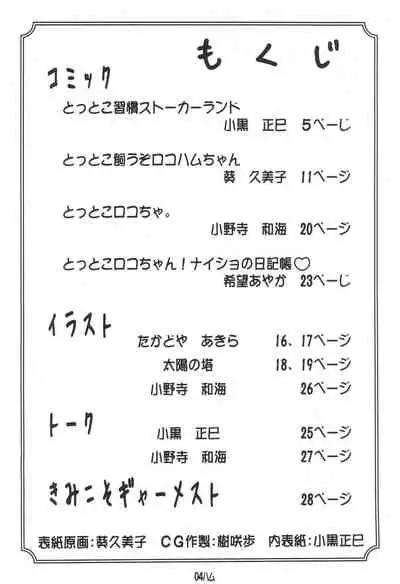 もくじ
コミック
とっとこ習慣ストーカーランド
小黒　正巳　5ぺーじ
とっとこ飼うぞロコハムちゃん
葵　久美子　11ページ
とっとこロコちゃ。
小野寺　和海　20ページ
とっとこロコちゃん！ナイショの日記帳♡
希望あやか　23ぺーじ
イラスト
たかどや　あきら　16、17ページ
太陽の塔　18、19ページ
小野寺　和海　26ページ
トーク
小黒　正巳　25ページ
小野寺　和海　27ページ
きみこそギャーメスト　28ページ
表紙原画：葵久美子　CG作製：樹咲歩　内表紙：小黒正巳
04/ハム